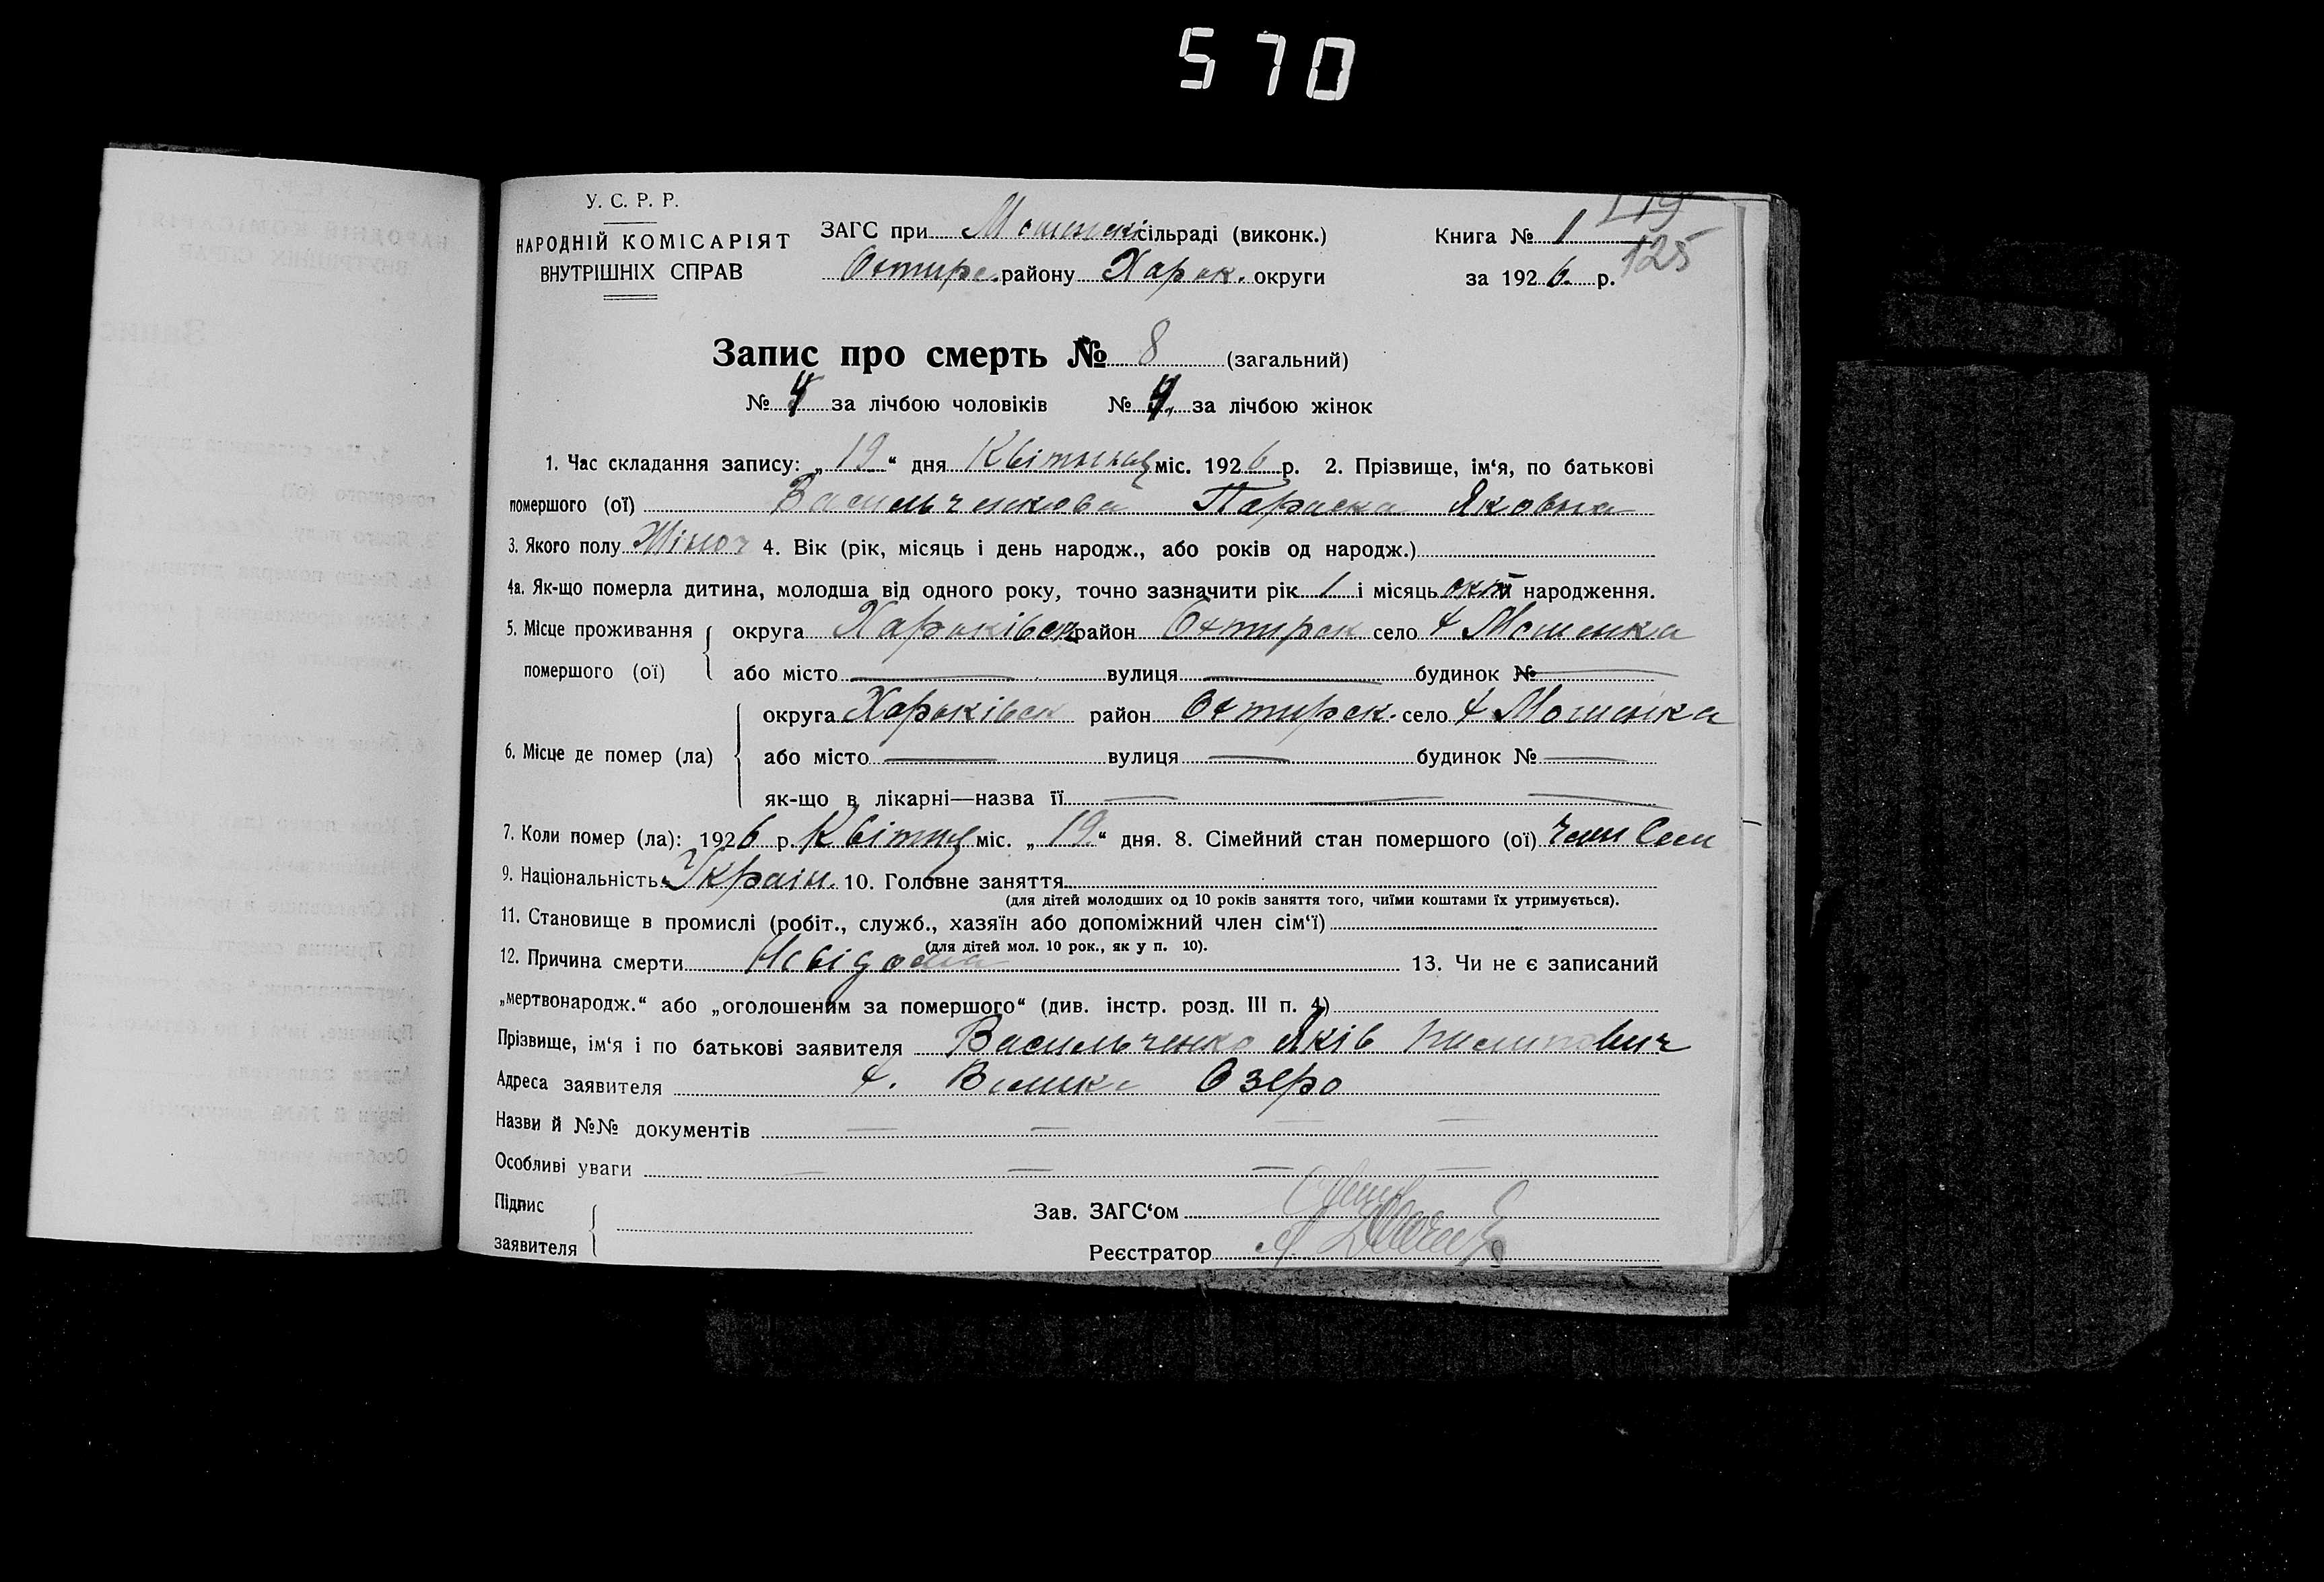 570
У. С. Р. Р.
НАРОДНІЙ КОМІСАРІЯТ
ВНУТРІШНІХ СПРАВ
ЗАГС при сільраді (виконк.)
Охтирс. району Харьк. округи
Книга № 1
за 1926 р.
125
Запис про смерть № 8 (загальний)
№ 4 за лічбою чоловіків № 4 за лічбою жінок
1. Час складання запису: „19“ дня міс. 1926 р. 2. Прізвище, ім‘я, по батькові
помершого (ої) Васильченкова Параска Яковна
3. Якого полу Жіноч 4. Вік (рік, місяць і день народж., або років од народж.)
4а. Як-що померла дитина, молодша від одного року, точно зазначити рік 1 і місяць народження.
5. Місце проживання помершого (ої) округа Харьківск район Охтирск село
або місто вулиця будинок №
6. Місце де помер (ла) округа Харьківск район Охтирск. село
або місто вулиця будинок №
як-що в лікарні—назва її
7. Коли помер (ла): 1926 р. Квітня міс. „19“ дня. 8. Сімейний стан помершого (ої)
9. Національність Україн. 10. Головне заняття
(для дітей молодших од 10 років заняття того, чиїми коштами їх утримується).
11. Становище в промислі (робіт., служб., хазяїн або допоміжний член сім‘ї)
(для дітей мол. 10 рок., як у п. 10).
12. Причина смерти Невідома 13. Чи не є записаний
„мертвонародж.“ або „оголошеним за помершого“ (див. інстр. розд. III п. 4)
Прізвище, ім‘я і по батькові заявителя Васильченко Яків
Адреса заявителя Озеро
Назви й №№ документів
Особливі уваги
Підпис заявителя
Зав. ЗАГС‘ом
Реєстратор